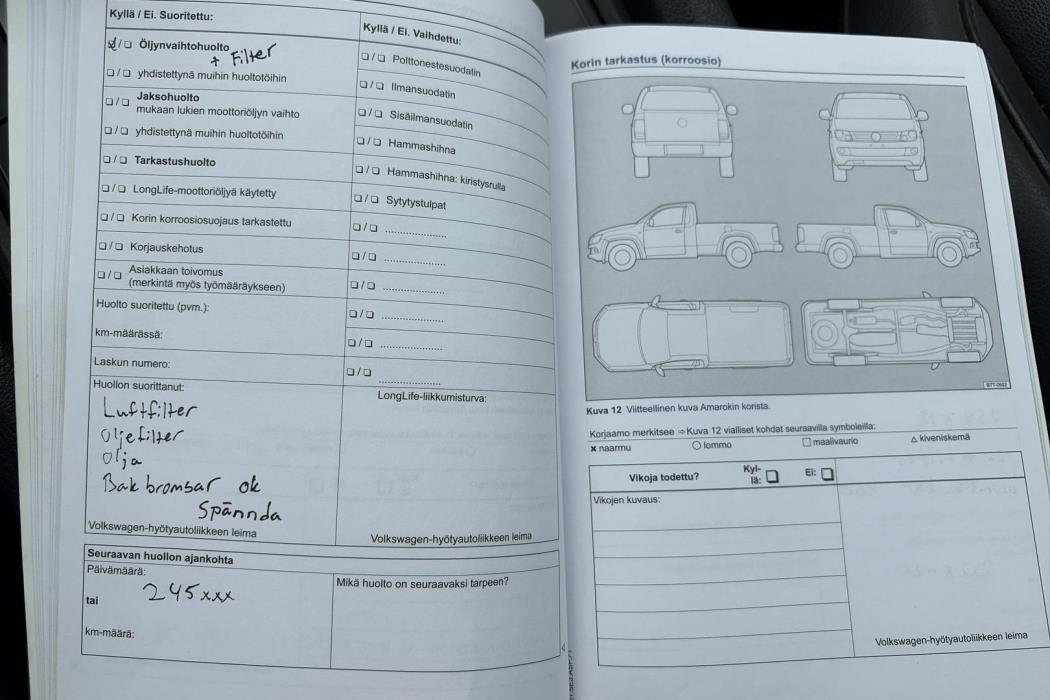 Kyllä / Ei. Suoritettu:
☑/❏ Öljynvaihtohuolto
+ Filter
❏/❏ yhdistettynä muihin huoltotöihin
❏/❏ Jaksohuolto
mukaan lukien moottoriöljyn vaihto
❏/❏ yhdistettynä muihin huoltotöihin
❏/❏ Tarkastushuolto
❏/❏ LongLife-moottoriöljyä käytetty
❏/❏ Korin korroosiosuojaus tarkastettu
❏/❏ Korjauskehotus
❏/❏ Asiakkaan toivomus
(merkintä myös työmääräykseen)
Huolto suoritettu (pvm.):
km-määrässä:
Laskun numero:
Huollon suorittanut:
Luftfilter
Oljefilter
Olja
Bak bromsar ok
Spännda
Volkswagen-hyötyautoliikkeen leima
Kyllä / Ei. Vaihdettu:
❏/❏ Polttonestesuodatin
❏/❏ Ilmansuodatin
❏/❏ Sisäilmansuodatin
❏/❏ Hammashihna
❏/❏ Hammashihna: kiristysrulla
❏/❏ Sytytystulpat
❏/❏ ....................
❏/❏ ....................
❏/❏ ....................
❏/❏ ....................
❏/❏ ....................
❏/❏ ....................
LongLife-liikkumisturva:
Volkswagen-hyötyautoliikkeen leima
Seuraavan huollon ajankohta
Päivämäärä:
245xxx
tai
km-määrä:
Mikä huolto on seuraavaksi tarpeen?
Korin tarkastus (korroosio)
Kuva 12 Viitteellinen kuva Amarokin korista.
Korjaamo merkitsee ⇨ Kuva 12 vialliset kohdat seuraavilla symboleilla:
✖ naarmu ○ lommo ☐ maalivaurio △ kiveniskemä
Vikoja todettu? Kyl-
lä: ❏ Ei: ❏
Vikojen kuvaus:
Volkswagen-hyötyautoliikkeen leima